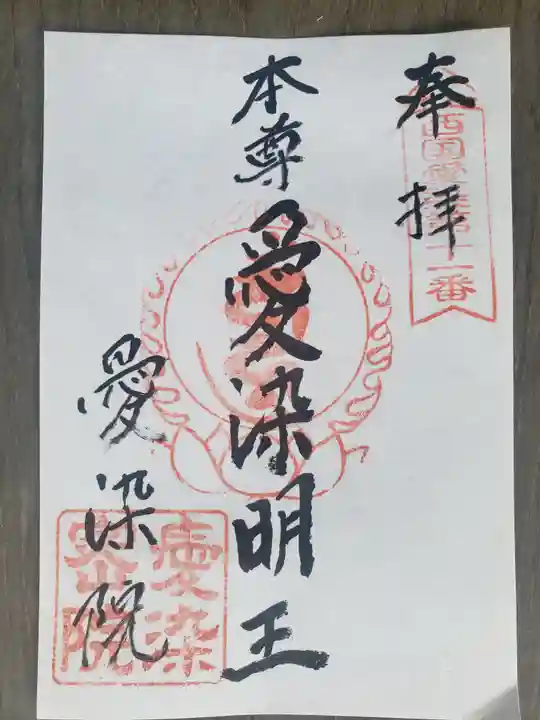 奉拝
西国愛染第十一番
本尊愛染明王
愛染院
愛染
寺院